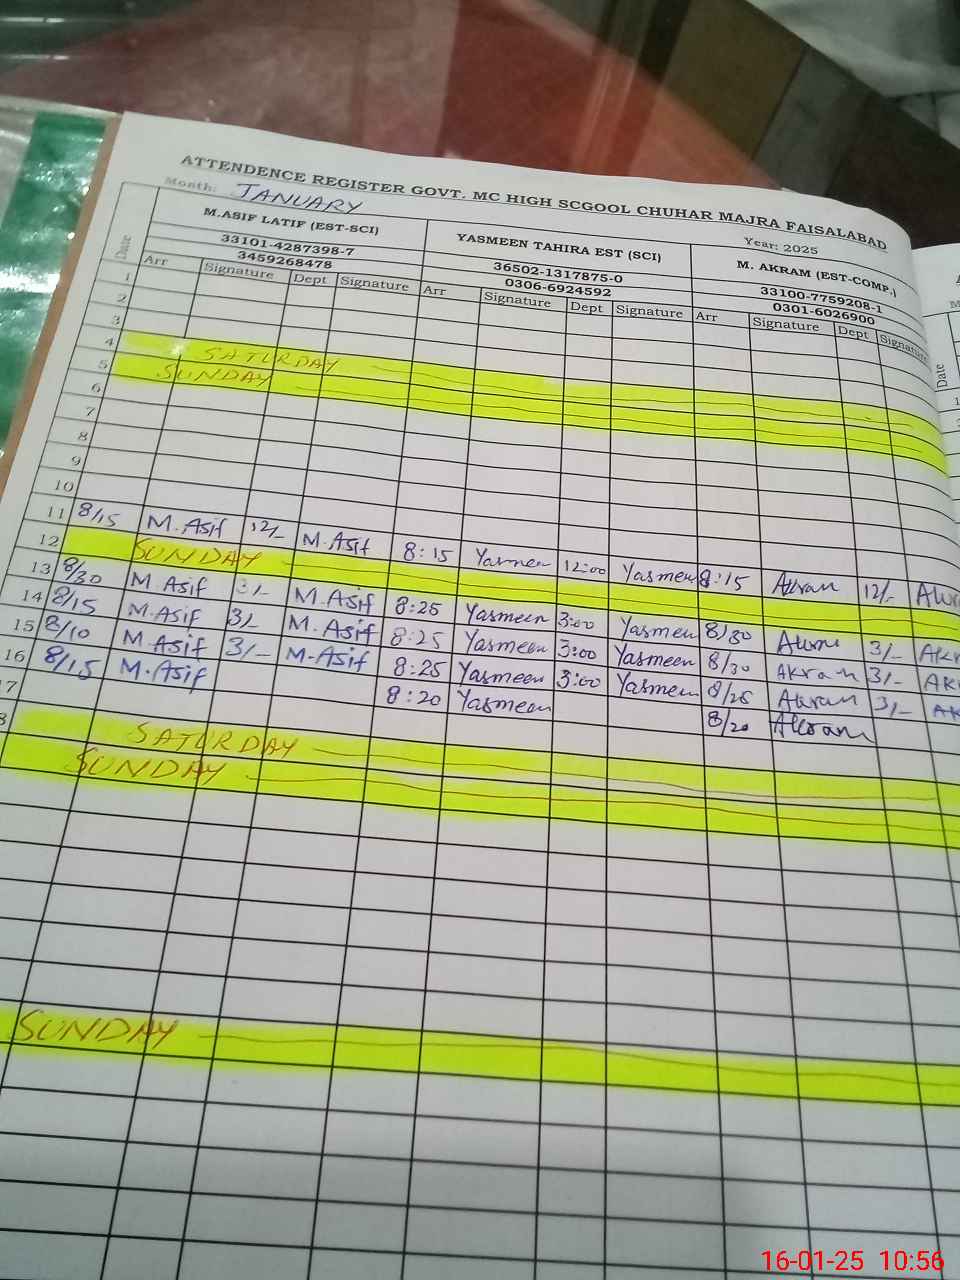 ATTENDENCE REGISTER GOVT. MC HIGH SCGOOL CHUHAR MAJRA FAISALABAD
Month: JANUARY
Year: 2025
Date M.ASIF LATIF (EST-SCI) YASMEEN TAHIRA EST (SCI) M. AKRAM (EST-COMP.)
33101-4287398-7 36502-1317875-0 33100-7759208-1
3459268478 0306-6924592 0301-6026900
Arr Signature Dept Signature Arr Signature Dept Signature Arr Signature Dept Signature
1
2
3
4 SATURDAY
5 SUNDAY
6
7
8
9
10
11 8/15 M.Asif 12/- M.Asif 8:15 Yasmeen 12:00 Yasmeen 8:15 Akram 12/-
12 SUNDAY
13 8/30 M.Asif 3/- M.Asif 8:25 Yasmeen 3:00 Yasmeen 8/30 Akram 3/-
14 8/15 M.Asif 3/- M.Asif 8:25 Yasmeen 3:00 Yasmeen 8/30 AKram 3/-
15 8/10 M.Asif 3/- M.Asif 8:25 Yasmeen 3:00 Yasmeen 8/25 Akram 3/-
16 8/15 M.Asif 8:20 Yasmeen 8/20 Akram
17
SATURDAY
SUNDAY
SUNDAY
Date
1
16-01-25 10:56